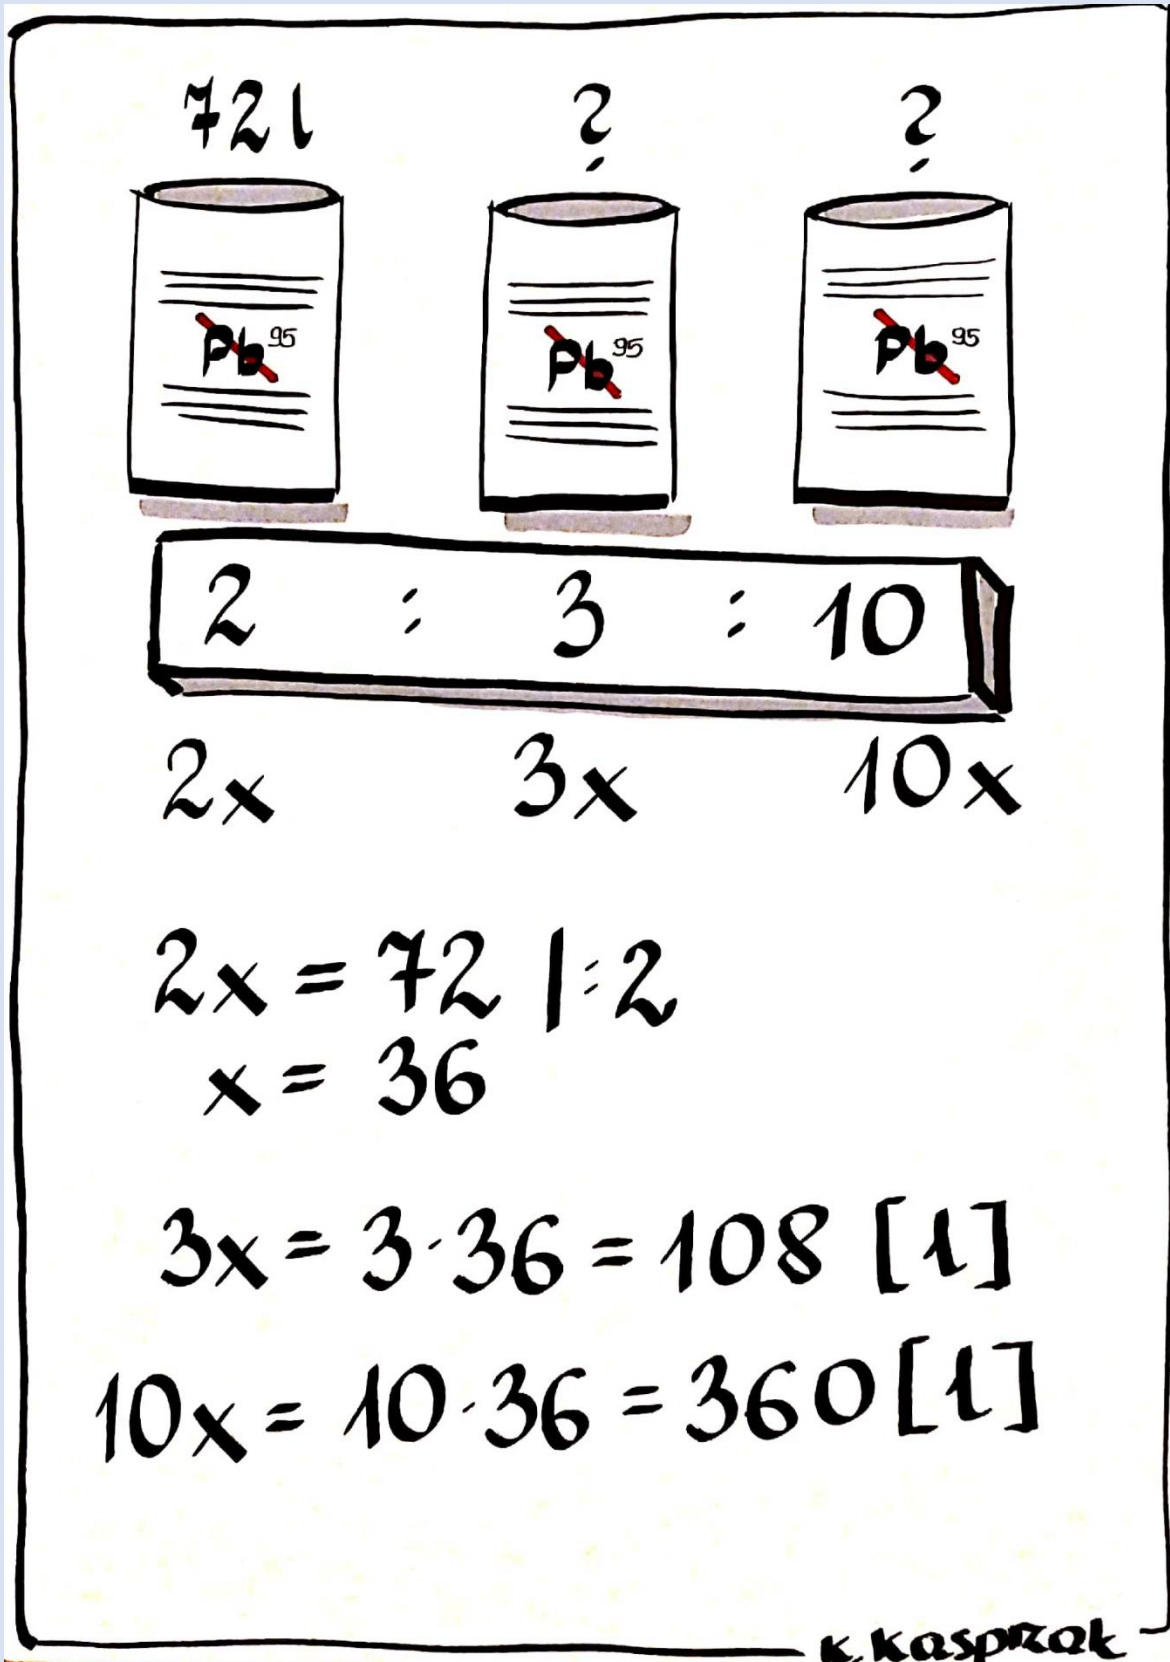 72 l ? ?
Pb95 Pb95 Pb95
2 : 3 : 10
2x 3x 10x
2x = 72 |:2
x = 36
3x = 3·36 = 108 [l]
10x = 10·36 = 360 [l]
K. Kasprzak